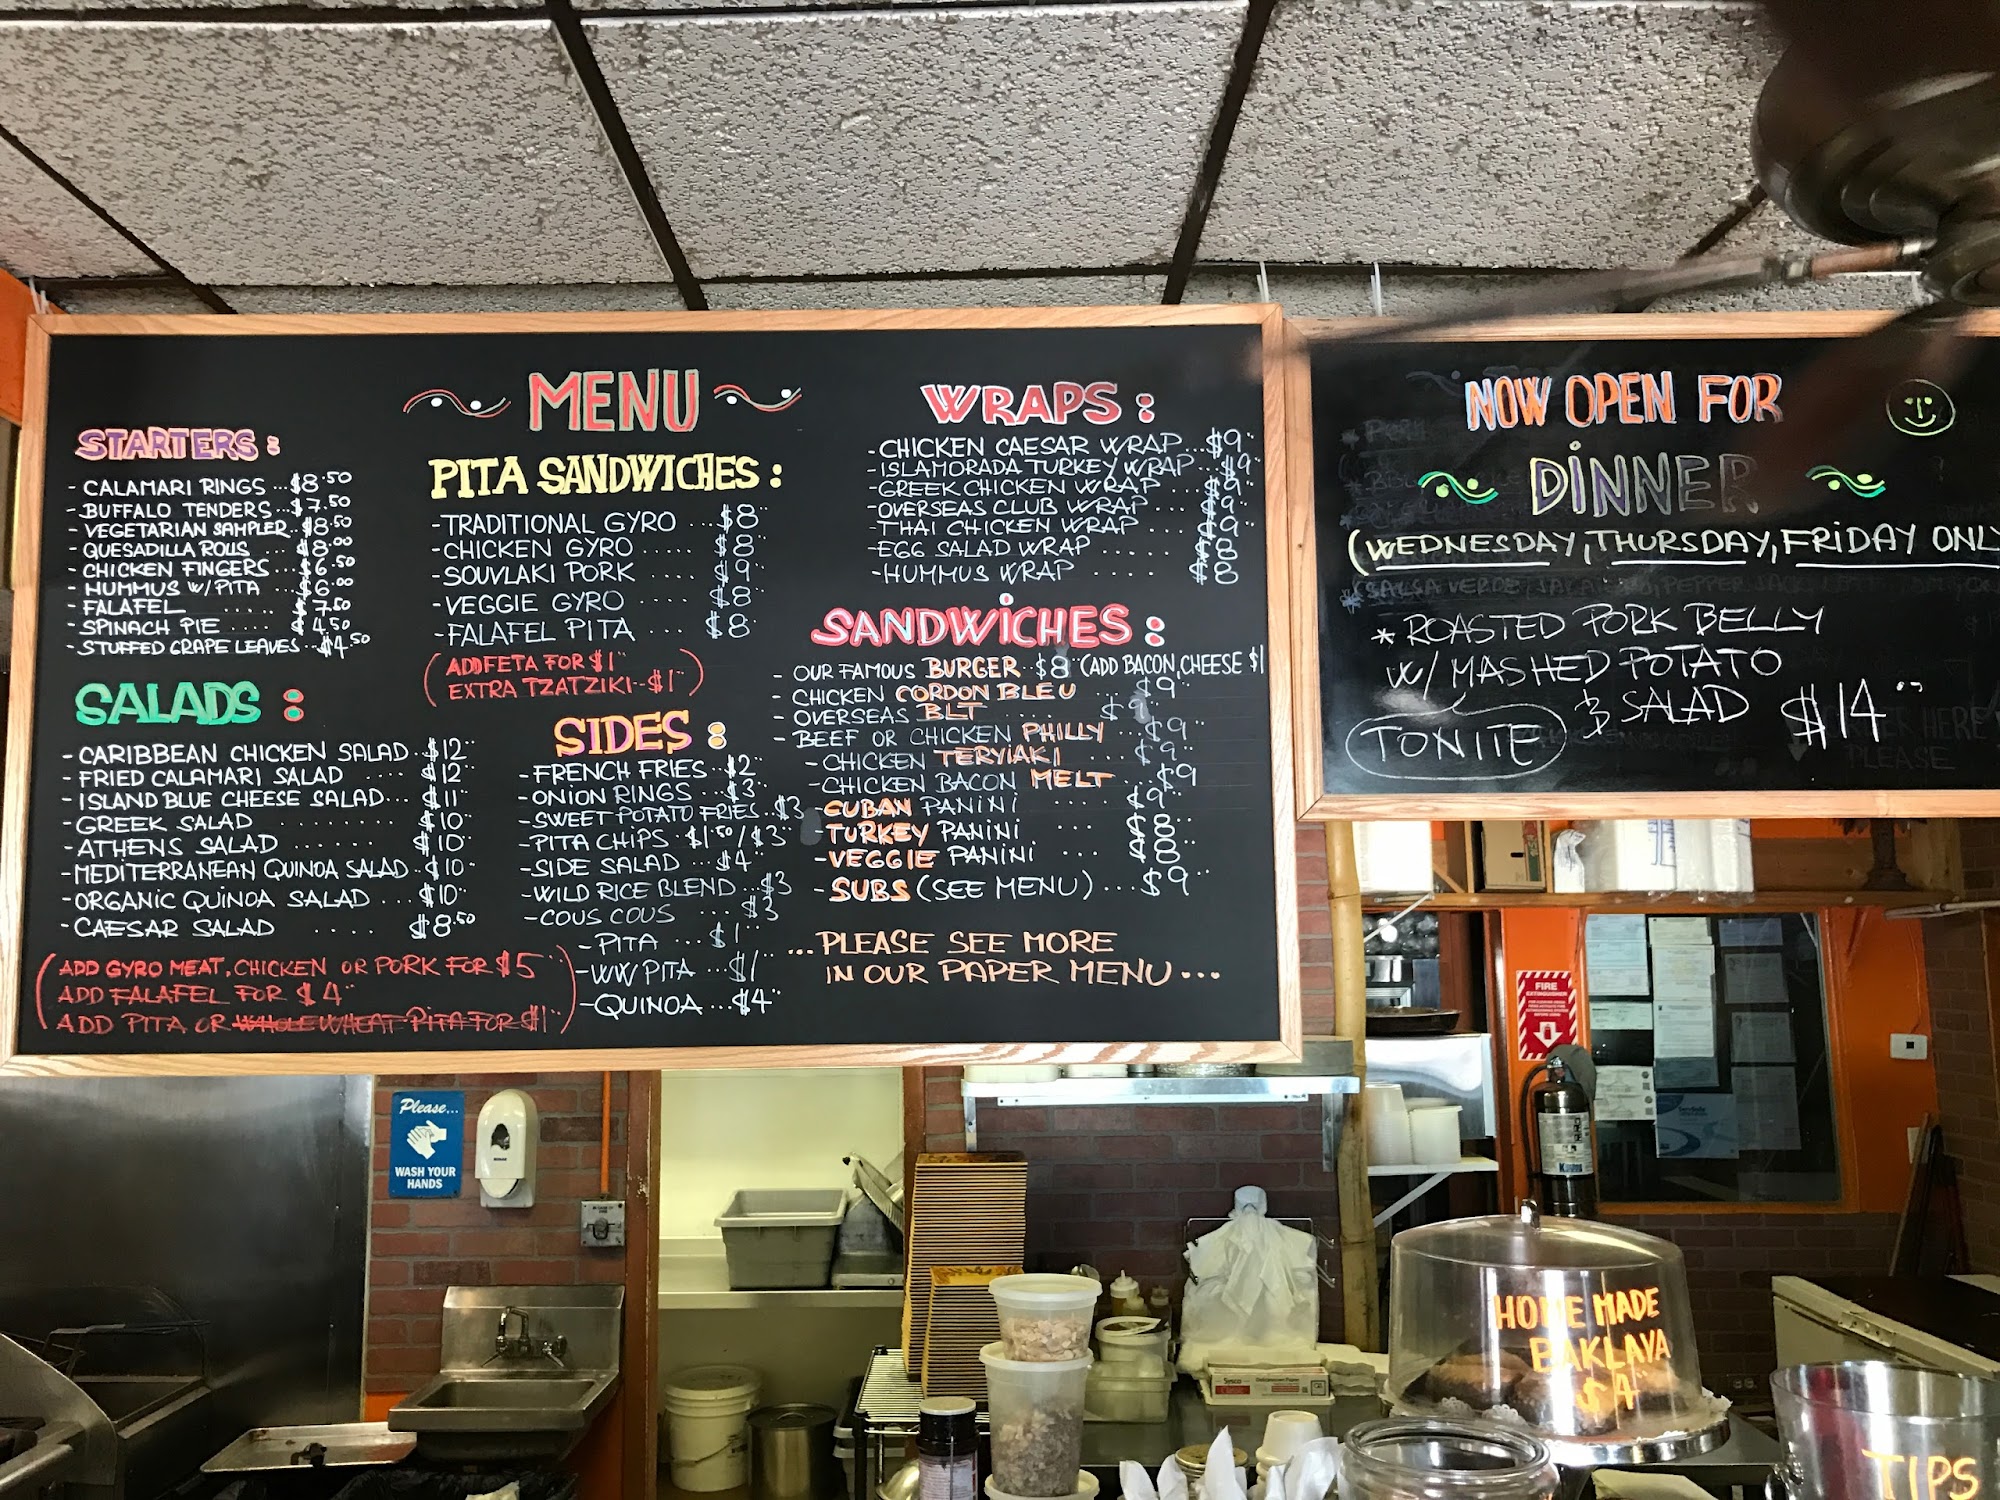 MENU
STARTERS :
- CALAMARI RINGS ... $8.50
- BUFFALO TENDERS ... $7.50
- VEGETARIAN SAMPLER .. $8.50
- QUESADILLA ROLLS ... $8.00
- CHICKEN FINGERS ... $6.50
- HUMMUS W/ PITA ... $6.00
- FALAFEL ..... $7.50
- SPINACH PIE .... $4.50
- STUFFED GRAPE LEAVES .. $4.50
SALADS :
- CARIBBEAN CHICKEN SALAD .. $12
- FRIED CALAMARI SALAD .... $12
- ISLAND BLUE CHEESE SALAD ... $11
- GREEK SALAD ........ $10
- ATHENS SALAD ...... $10
- MEDITERRANEAN QUINOA SALAD . $10
- ORGANIC QUINOA SALAD .... $10
- CAESAR SALAD .... $8.50
(ADD GYRO MEAT, CHICKEN OR PORK FOR $5
ADD FALAFEL FOR $4
ADD PITA OR WHOLE WHEAT PITA FOR $1)
PITA SANDWICHES :
- TRADITIONAL GYRO ... $8
- CHICKEN GYRO ..... $8
- SOUVLAKI PORK .... $9
- VEGGIE GYRO .... $8
- FALAFEL PITA ... $8
(ADD FETA FOR $1
EXTRA TZATZIKI -- $1)
SIDES :
- FRENCH FRIES .. $2
- ONION RINGS ... $3
- SWEET POTATO FRIES .. $3
- PITA CHIPS .. $1.50 / $3
- SIDE SALAD ... $4
- WILD RICE BLEND ... $3
- COUS COUS ... $3
- PITA ... $1
- WW PITA ... $1
- QUINOA ... $4
WRAPS :
- CHICKEN CAESAR WRAP ... $9
- ISLAMORADA TURKEY WRAP ... $9
- GREEK CHICKEN WRAP ... $9
- OVERSEAS CLUB WRAP ... $9
- THAI CHICKEN WRAP .... $9
- EGG SALAD WRAP ..... $8
- HUMMUS WRAP .... $8
SANDWICHES :
- OUR FAMOUS BURGER .. $8 (ADD BACON, CHEESE $1
- CHICKEN CORDON BLEU ... $9
- OVERSEAS BLT ..... $9
- BEEF OR CHICKEN PHILLY ... $9
- CHICKEN TERYIAKI ... $9
- CHICKEN BACON MELT .. $9
- CUBAN PANINI .... $9
- TURKEY PANINI ... $8
- VEGGIE PANINI ... $8
- SUBS (SEE MENU) ... $9
... PLEASE SEE MORE
IN OUR PAPER MENU ...
NOW OPEN FOR
DINNER
(WEDNESDAY, THURSDAY, FRIDAY ONLY
* ROASTED PORK BELLY
W/ MASHED POTATO
& SALAD $14
TONITE
HERE
PLEASE
Please...
WASH YOUR
HANDS
FIRE
EXTINGUISHER
Sysco
HOME MADE
BAKLAVA
$4
TIPS